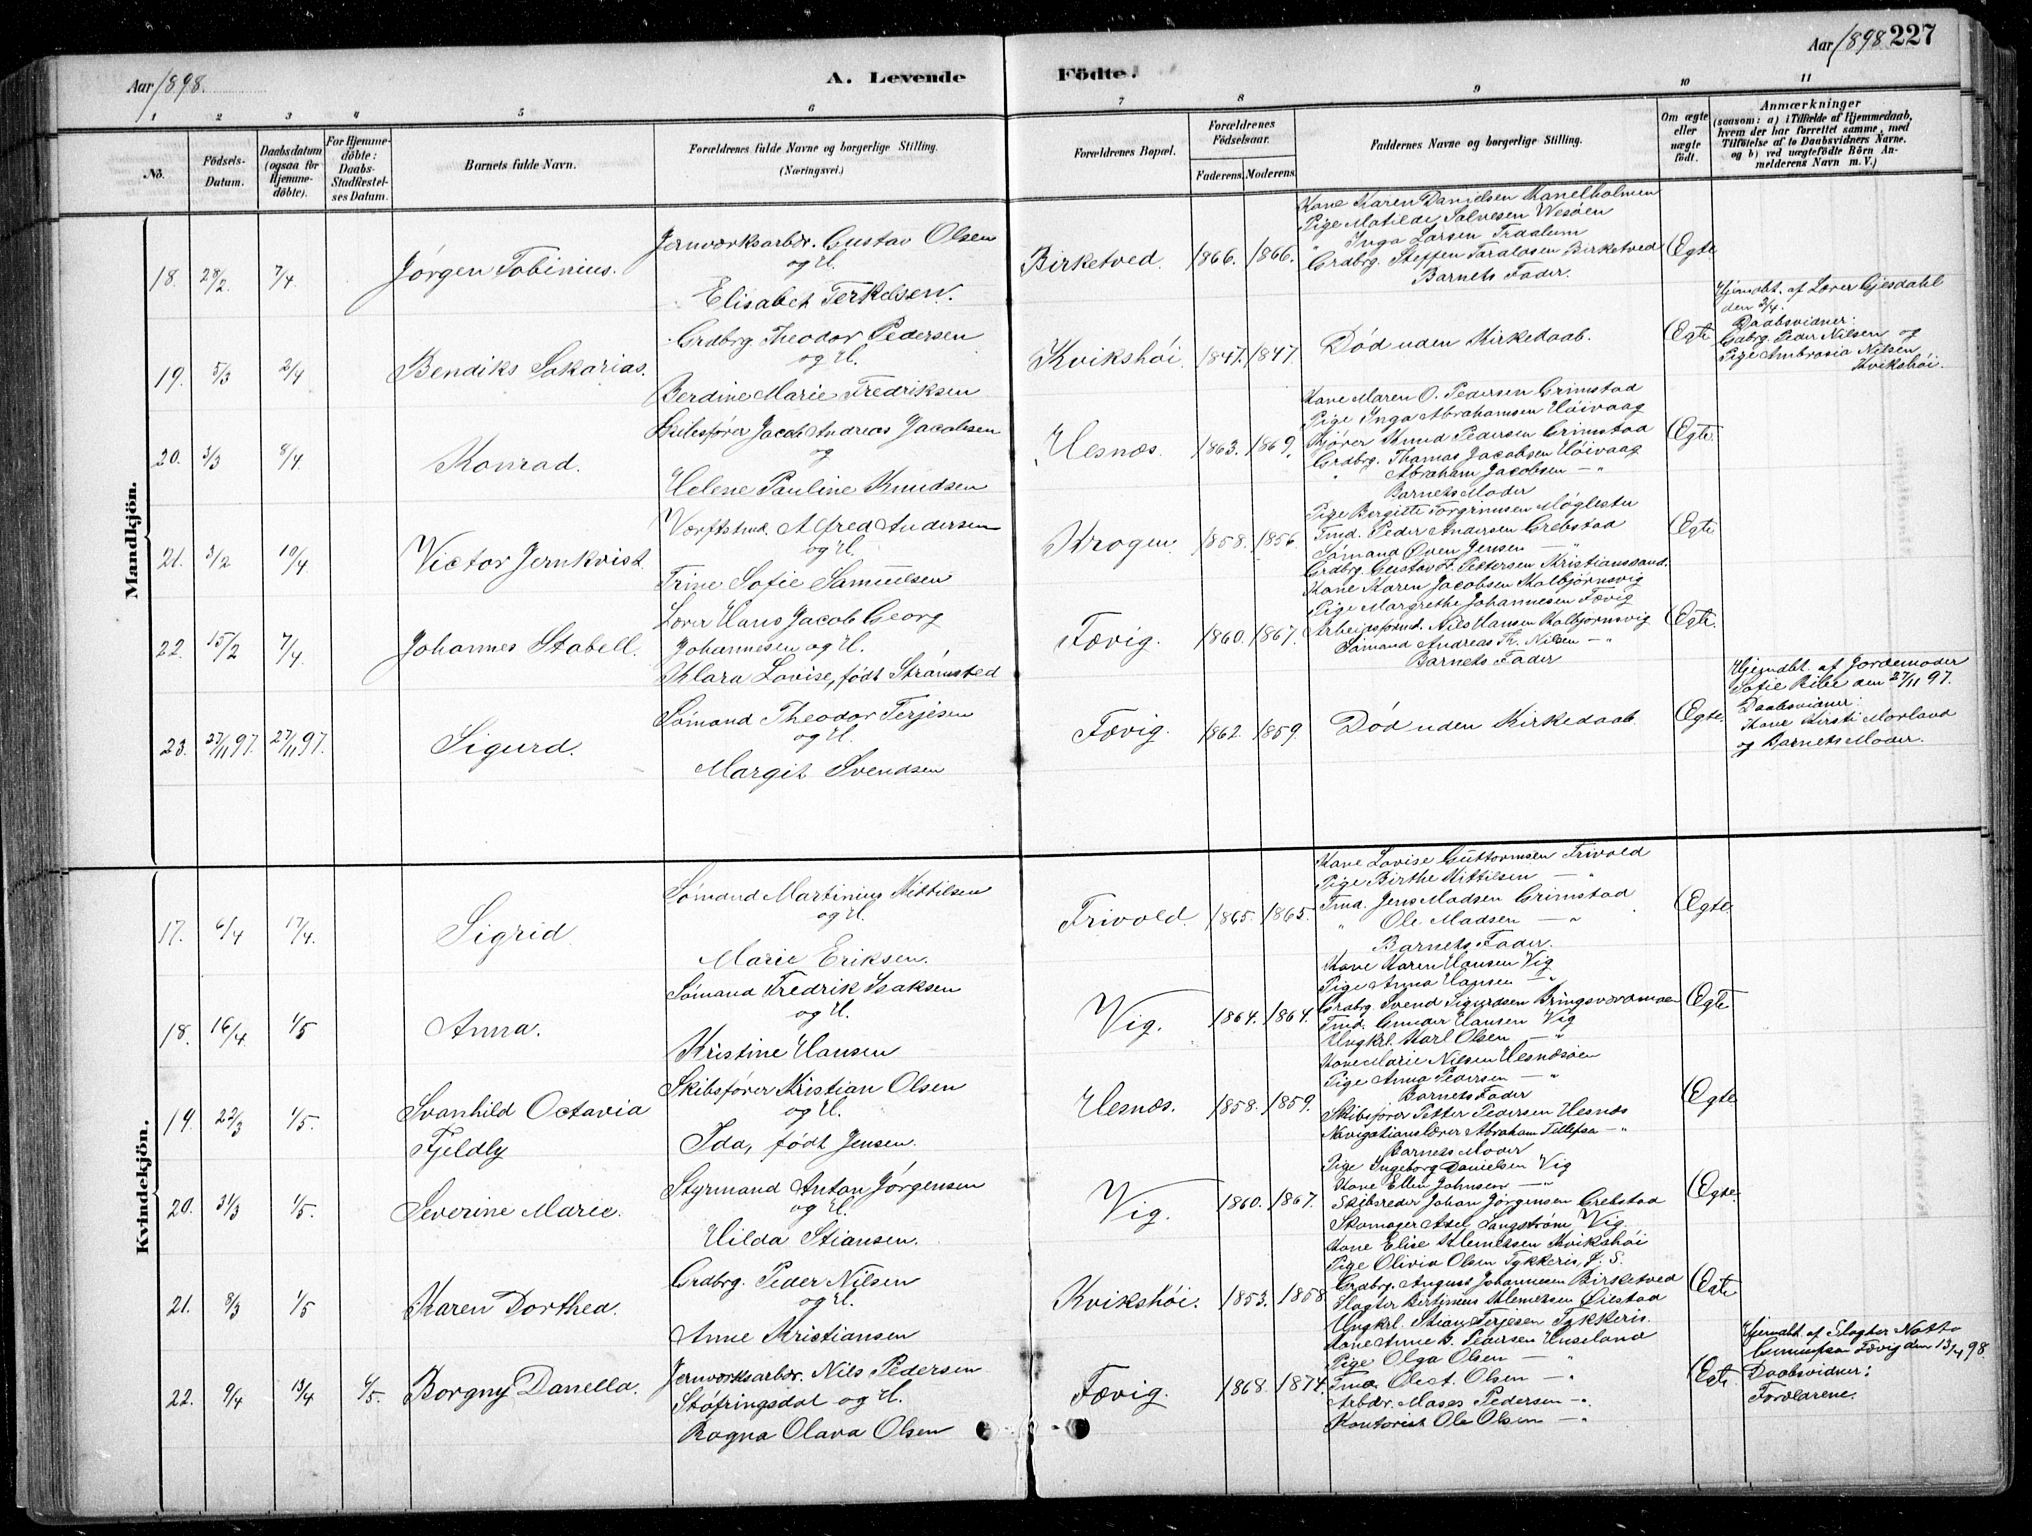 Aar 1898.
A. Levende Födte.
Aar 1898 227
1 2 3 4 5 6 7 8 9 10 11
No.
Födsels-Datum.
Daabsdatum (ogsaa for Hjemmedöbte).
For Hjemmedöbte: Daabs-Stadfæstelses Datum.
Barnets fulde Navn.
Forældrenes fulde Navne og borgerlige Stilling. (Næringsvei.)
Forældrenes Bopæl.
Forældrenes Födselsaar.
Faderens. Moderens.
Faddernes Navne og borgerlige Stilling.
Om ægte eller uægte födt.
Anmærkninger
(saasom: a) i Tilfælde af Hjemmedaab, hvem der har forrettet samme, med Tilföielse af to Daabsvidners Navne. og b) ved uægtefödte Börn Anmelderens Navn m. V.)
Mandkjön.
18. 28/2 7/4 Jørgen Tobinius.
Jernværksarbdr. Gustav Olsen
og H.
Elisabet Terkelsen.
Birketved. 1866. 1866.
Kone Karen Danielsen Kanelholmen
Pige Matilde Salvesen Vesøen
" Inga Larsen Traalum
Grdbrg. Steffen Taraldsen Birketved
Barnets Fader.
Egte
19. 5/3 2/4 Bendiks Sakarias.
Grdbrg. Theodor Pedersen
og H.
Berdine Marie Fredriksen
Kvikshøi. 1847. 1847
Død uden Kirkedaab.
Egte
Hjemdbt. af Lærer Gjesdahl
den 2/4.
Daabsvidner:
Gabrg. Peder Nilsen og
Pige Ambrosia Nilsen
Kvikshøi.
20. 3/3 8/4 Konrad.
Skibsfører Jacob Andreas Jacobsen
og
Helene Pauline Knudsen
Hesnæs. 1863. 1869.
Kone Maren O. Pedersen Grimstad
Pige Inga Abrahamsen Høivaag
Kjører Knud Pedersen Grimstad
Grdbrg. Thomas Jacobsen Høivaag
" Abraham Jacobsen — "
Barnets Moder
Egte.
21. 3/2 10/4 Victor Jernkvist.
Værftstmd. Alfred Andersen
og H.
Trine Sofie Samuelsen
Krogen. 1858. 1856.
Pige Bergitte Torgrimsen Møglestu
Tmd. Peder Andersen Grebstad
Sømand Oven Jensen — "
Grdbrg. Gustav F. Pettersen Kristianssand.
Egte
22. 15/2 7/4 Johannes Stabell.
Lærer Hans Jacob Georg
Johannesen og H.
Klara Lovise, født Strømsted
Fævig. 1860. 1867.
Kone Karen Jacobsen Kalbjørnsvig
Pige Margrethe Johannesen Fævig
Arbeidsformd. Nils Hansen Kalbjørnsvig
Sømand Andreas Th. Nilsen — "
Barnets Fader
Egte.
23. 27/11 97. 27/11 97. Sigurd.
Sømand Theodor Terjesen
og H.
Margit Svendsen
Fævig. 1862. 1859.
Død uden Kirkedaab.
Egte.
Hjemdbt. af Jordemoder
Sofie Ribe den 27/11 97.
Daabsvidner:
Kone Kirsti Morland
og Barnets Moder.
Kvindekjön.
17. 6/4 17/4. Sigrid
Sømand Martinius Kittilsen
og H.
Marie Eriksen.
Trivold. 1865. 1865.
Kone Lovise Guttormsen Trivold
Pige Birthe Kittilsen — "
Tmd. Jens Madsen Grimstad
" Ole Madsen — "
Barnets Fader.
Egte.
18. 16/4 1/5 Anna.
Sømand Fredrik Isaksen
og H.
Kristine Hansen
Vig. 1864. 1864.
Kone Karen Hansen Vig
Pige Anna Hansen — "
Grdbrg. Svend Sigurdsen Bringsværdmoen
Tmd. Gunder Hansen Vig
Ungkrl. Karl Olsen — "
Egte
19. 22/3 1/5. Svanhild Octavia
Fjeldly
Skibsfører Kristian Olsen
og H.
Ida, født Jensen.
Hesnæs. 1858. 1859.
Kone Marie Nilsen Hesnæsøen
Pige Anna Pedersen — "
Barnets Fader
Skibsfører Petter Pedersen Hesnæs
Navigationslærer Abraham Tellefsen — "
Barnets Moder
Egte
20. 31/3 1/5. Severine Marie.
Styrmand Anton Jørgensen
og H.
Hilda Stiansen.
Vig. 1860. 1867.
Pige Ingeborg Danielsen Vig
Kone Ellen Johnsen — "
Skibsreder Johan Jørgensen Grebstad
Skomager Axel Langstrøm Vig
Egte.
21. 8/3 1/5 Karen Dorthea.
Grdbrg. Peder Nilsen
og H.
Anne Kristiansen
Kvikshøi. 1853. 1858
Kone Elise Klemetsen Kvikshøi
Pige Olivia Olsen Tykkeris, F. S.
Grdbrg. August Johannesen Birketved
Slagter Bertinius Klemetsen Øiestad
Ungkrl. Stian Terjesen Tykkeris.
Egte
22. 9/4 13/4 4/5. Borgny Danella.
Jernværksarbdr. Nils Pedersen
Støfringsdal og H.
Ragna Olava Olsen
Fævig. 1868. 1874.
Kone Anne B. Pedersen Huseland
Pige Olga Olsen — "
Tmd. Olest. Olsen — "
Arbdr. Moses Pedersen — "
Kontorist Ole Olsen — "
Egte
Hjemdbt. af Slagter Notto
Gunnufsen Fævig den 13/4 98.
Daabsvidner:
Forældrene.